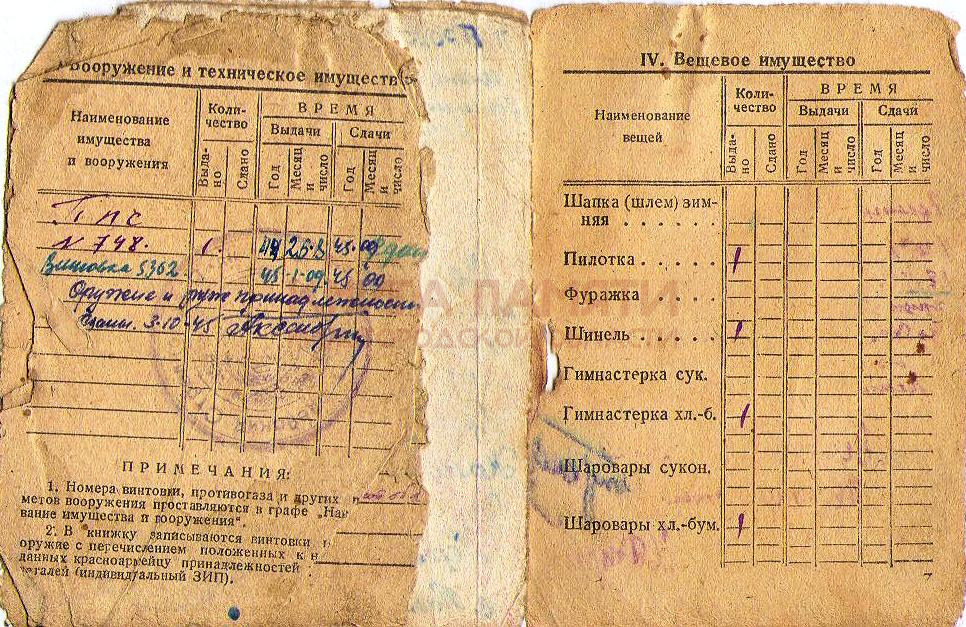 Вооружение и техническое имуществ
Наименование
имущества
и вооружения
Коли-
чество
ВРЕМЯ
Выдачи
Сдачи
Выда-
но
Сдано
Год
Месяц
и
число
Год
Месяц
и
число
N 748. 1. 44 26.8 45.
Винтовка 5362 45 1.09 45
Оружие и принадлежности
3.10.45
ПРИМЕЧАНИЯ:
1. Номера винтовки, противогаза и других
метов вооружения проставляются в графе „Наи
вание имущества и вооружения".
2. В книжку записываются винтовки
оружие с перечислением положенных к
данных красноармейцу принадлежностей
талей (индивидуальный ЗИП).
IV. Вещевое имущество
Наименование
вещей
Коли-
чество
ВРЕМЯ
Выдачи
Сдачи
Выда-
но
Сдано
Год
Месяц
и
число
Год
Месяц
и
число
Шапка (шлем) зим-
няя . . . . . .
Пилотка . . . . . 1
Фуражка . . . . .
Шинель . . . . . 1
Гимнастерка сук.
Гимнастерка хл.-б. 1
Шаровары сукон.
Шаровары хл.-бум. 1